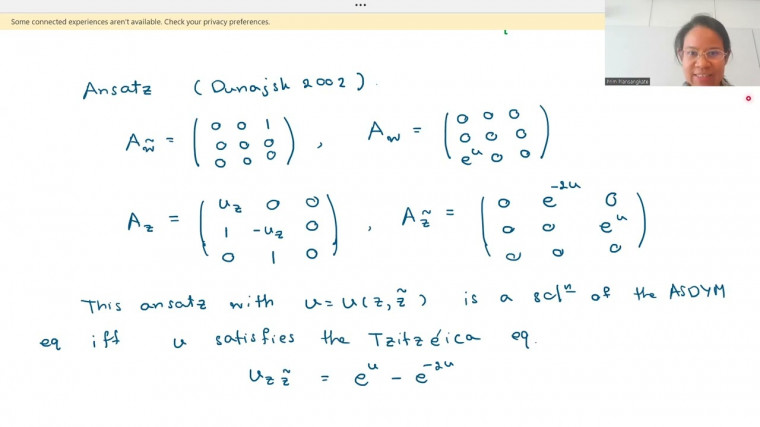 Some connected experiences aren't available. Check your privacy preferences.
Ansatz (Dunajsk 2002).
A_w̃ = ( 0 0 1 ; 0 0 0 ; 0 0 0 ) , A_w = ( 0 0 0 ; 0 0 0 ; e^u 0 0 )
A_z = ( u_z 0 0 ; 1 -u_z 0 ; 0 1 0 ) , A_z̃ = ( 0 e^{-2u} 0 ; 0 0 e^u ; 0 0 0 )
This ansatz with u = u(z, z̃) is a solⁿ of the ASDYM
eq iff u satisfies the Tzitzéica eq.
u_{z z̃} = e^u - e^{-2u}